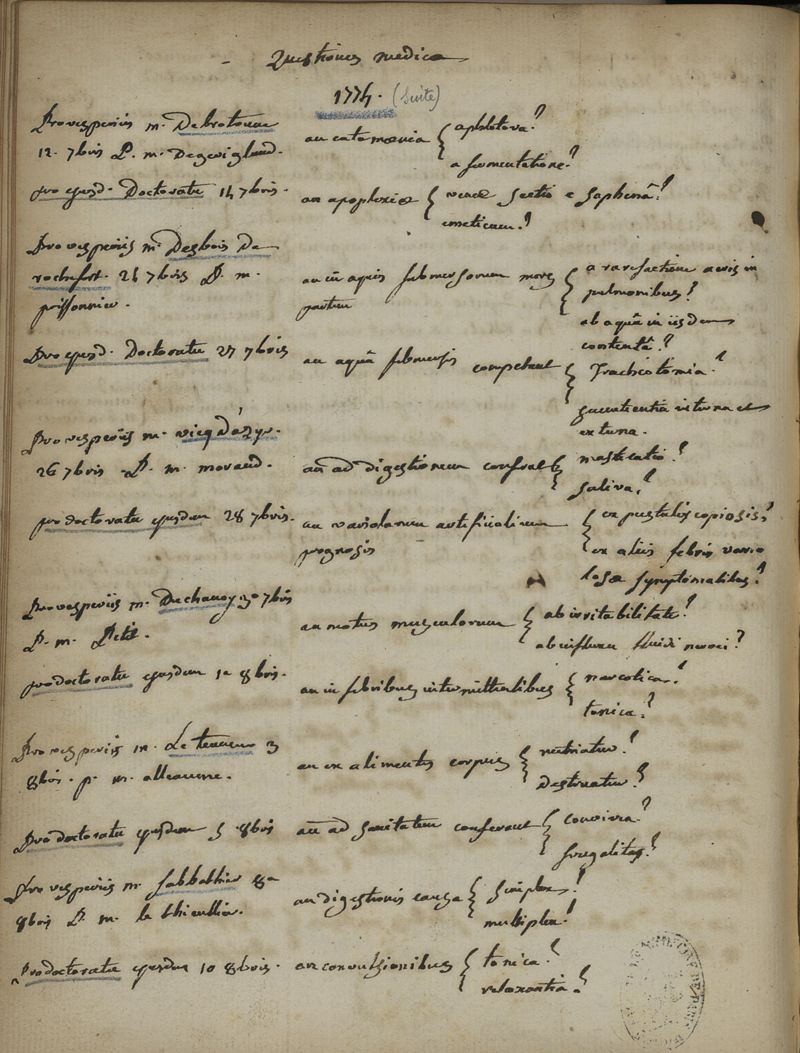 Questiones medicæ
1774. (suite)
Pro vesperiis m. Debrotonne
12. 7bris P. m. Degevigland.
an catamenia { a plethora?
a fermentatione?
pro ejusd. Doctoratu 14 7bris.
an apoplexiæ { venæ sectio e saphenâ?
emeticum?
Pro vesperiis m. Desbois De
rochefort. 26 7bris P. m.
poissonnier.
an in aquis submersorum mors
{ a rarefactione aeris in
pulmonibus?
ab aquâ in iisdem
contentâ?
Pro ejusd. Doctoratu 27 7bris
an aquâ submersis competant { Tracheotomia?
interna et
externa.
Pro vesperiis m. vicq D'azyr.
26 7bris P. m. morand.
an ad digestionem conferat { masticatio?
saliva?
pro doctoratu ejusdem 28 7bris.
an variolarum artificialium
prognosis
{ ex pustulis copiosis?
ex aliis febris vario
losæ symptomatibus?
Pro vesperiis m. Duchanoy 30 7bris
P. m. Petit.
an motus musculorum { ab irritabilitate?
ab influxu fluidi nervei?
pro doctoratu ejusdem 1a 8bris.
an in febribus intermittentibus { narcotica?
tonica?
Pro vesperiis m. Le teneur 3
8bris. p. m. alleaume.
an ex alimentis corpus { nutriatur?
Destruatur?
Pro doctoratu ejusdem 5 8bris
an ad sanitatem conferant { convivia?
frugalitas?
Pro vesperiis m. sabbathier 8a
8bris P. m. le thieullier.
an digestionis causa { simplex?
multiplex?
Pro doctoratu ejusdem 10 8bris.
an convulsionibus { tonica?
relaxantia?